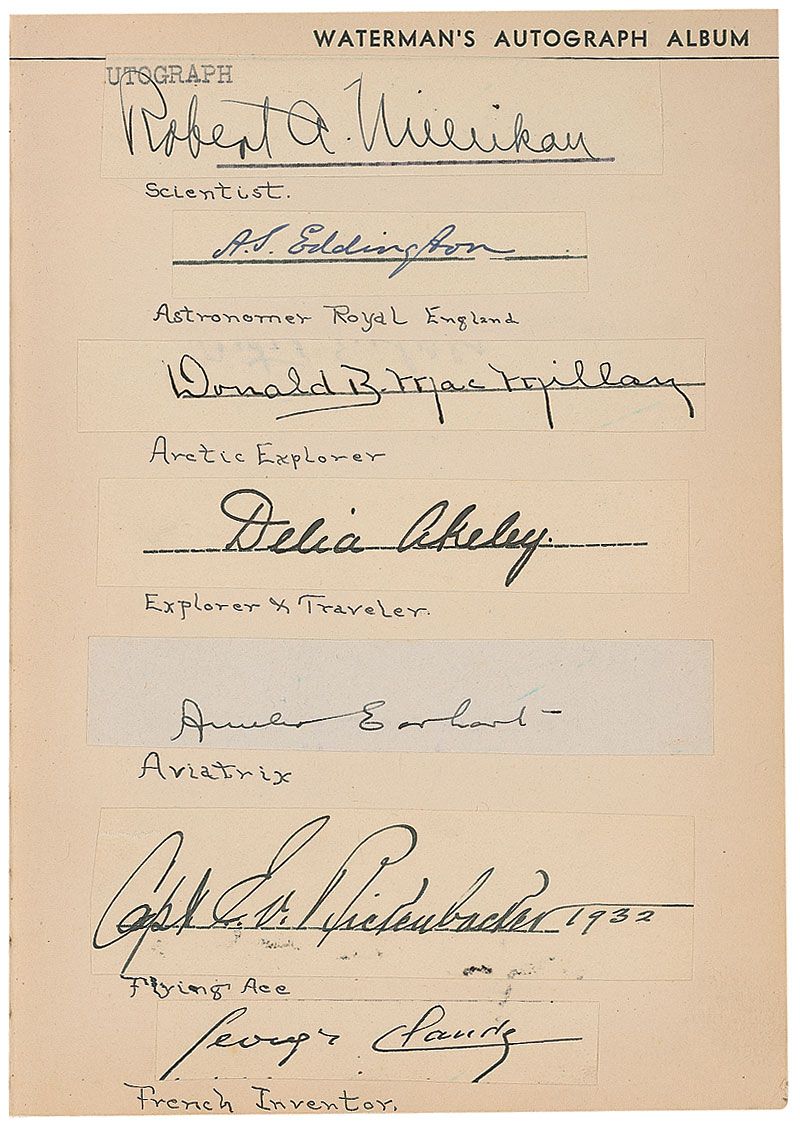 WATERMAN'S AUTOGRAPH ALBUM
UTOGRAPH
Robert A. Millikan
Scientist.
A.S. Eddington
Astronomer Royal England
Donald B. MacMillan
Arctic Explorer
Delia Akeley.
Explorer & Traveler.
Amelia Earhart
Aviatrix
Capt E. V. Rickenbacker 1932
Flying Ace
Georges Claude
French Inventor.